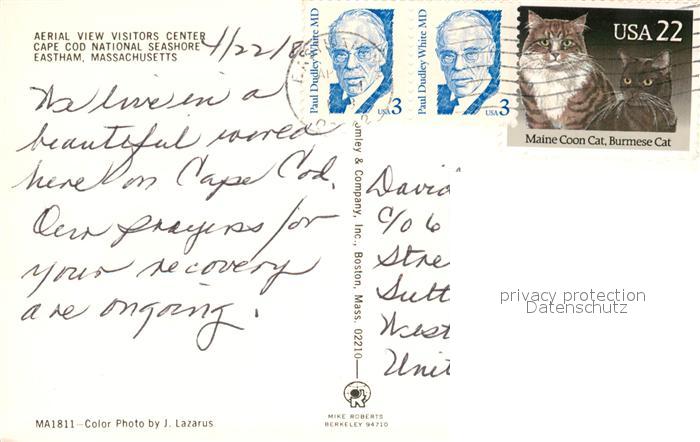 AERIAL VIEW VISITORS CENTER
CAPE COD NATIONAL SEASHORE
EASTHAM, MASSACHUSETTS
4/22/8
We live in a
beautiful world
here on Cape Cod.
Our prayers for
your recovery
are ongoing.
Paul Dudley White MD
USA 3
Paul Dudley White MD
USA 3
USA 22
Maine Coon Cat, Burmese Cat
David
C/O 6
Stre
Sutt
West
Unit
privacy protection
Datenschutz
omley & Company, Inc., Boston, Mass. 02210
MIKE ROBERTS
BERKELEY 94710
MA1811—Color Photo by J. Lazarus